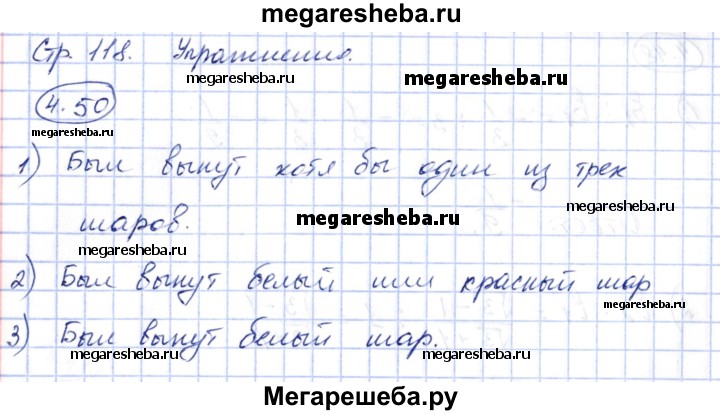 megaresheba.ru
Стр. 118. Упражнения.
megaresheba.ru
megaresheba.ru
4.50
megaresheba.ru
1) Был вынут хотя бы один из трех
megaresheba.ru
megaresheba.ru
шаров.
megaresheba.ru
2) Был вынут белый или красный шар
megaresheba.ru
megaresheba.ru
3) Был вынут белый шар.
megaresheba.ru
megaresheba.ru
Мегарешеба.ру